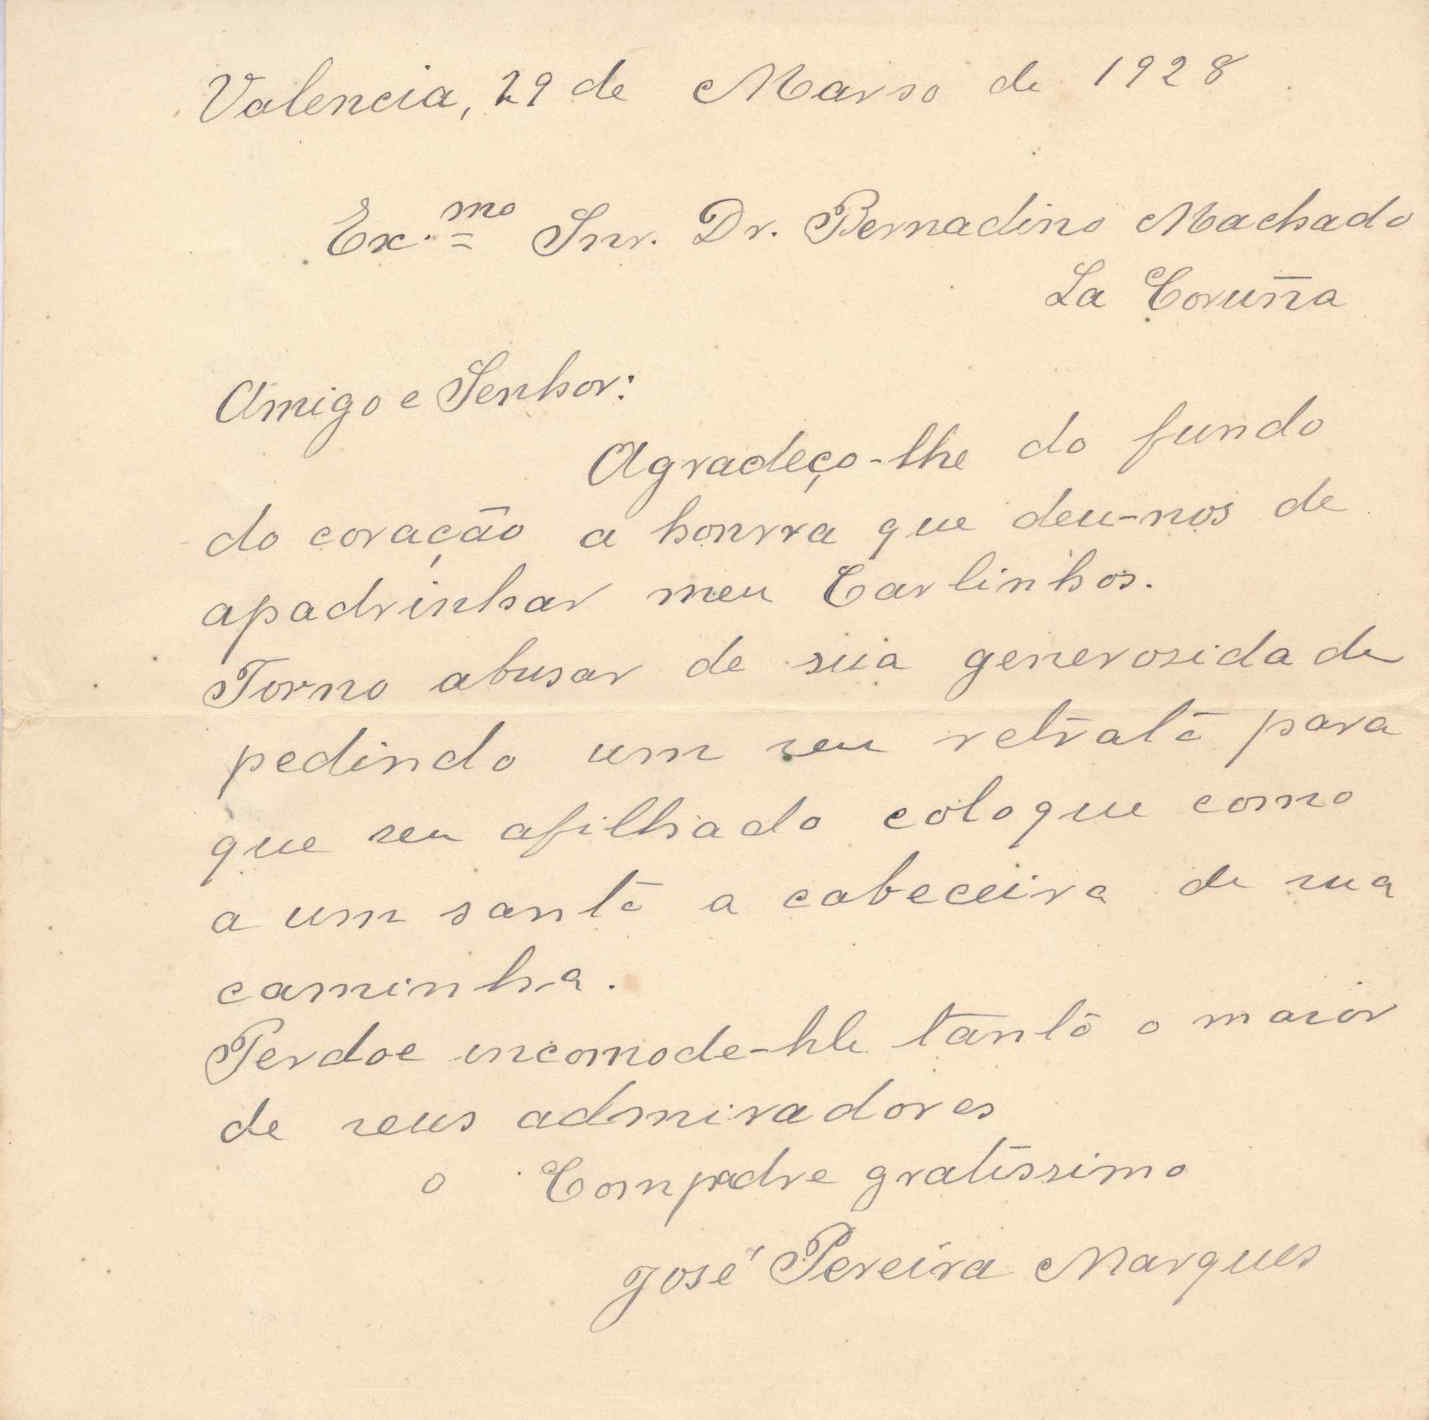 Valencia, 29 de Marso de 1928
Ex.mo Snr. Dr. Bernadino Machado
La Coruña
Amigo e Senhor:
Agradeço-lhe do fundo
do coração a honrra que deu-nos de
apadrinhar meu Carlinhos.
Torno abusar de sua generosidade
pedindo um seu retrato para
que seu afilhado coloque como
a um santo a cabeceira de sua
caminha.
Perdoe incomode-hle tanto o maior
de seus admiradores
o Compadre gratissimo
José Pereira Marques